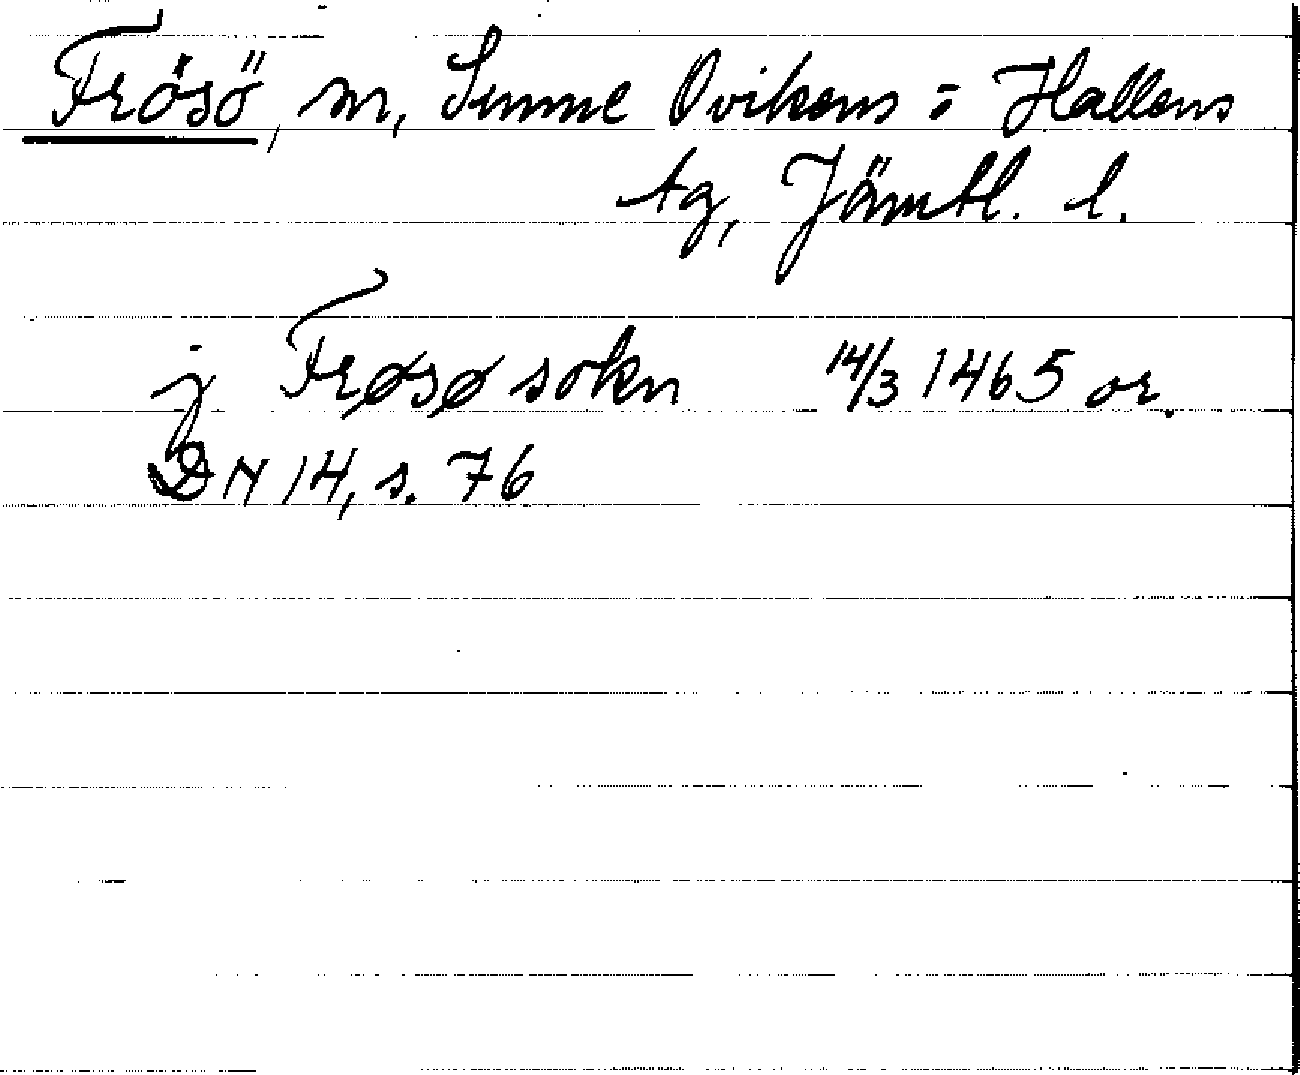 Frösö, sn, Sunne Ovikens = Hallens
tg, Jämtl. l.
j Frøsø sokn 14/3 1465 or.
DN 14, s. 76